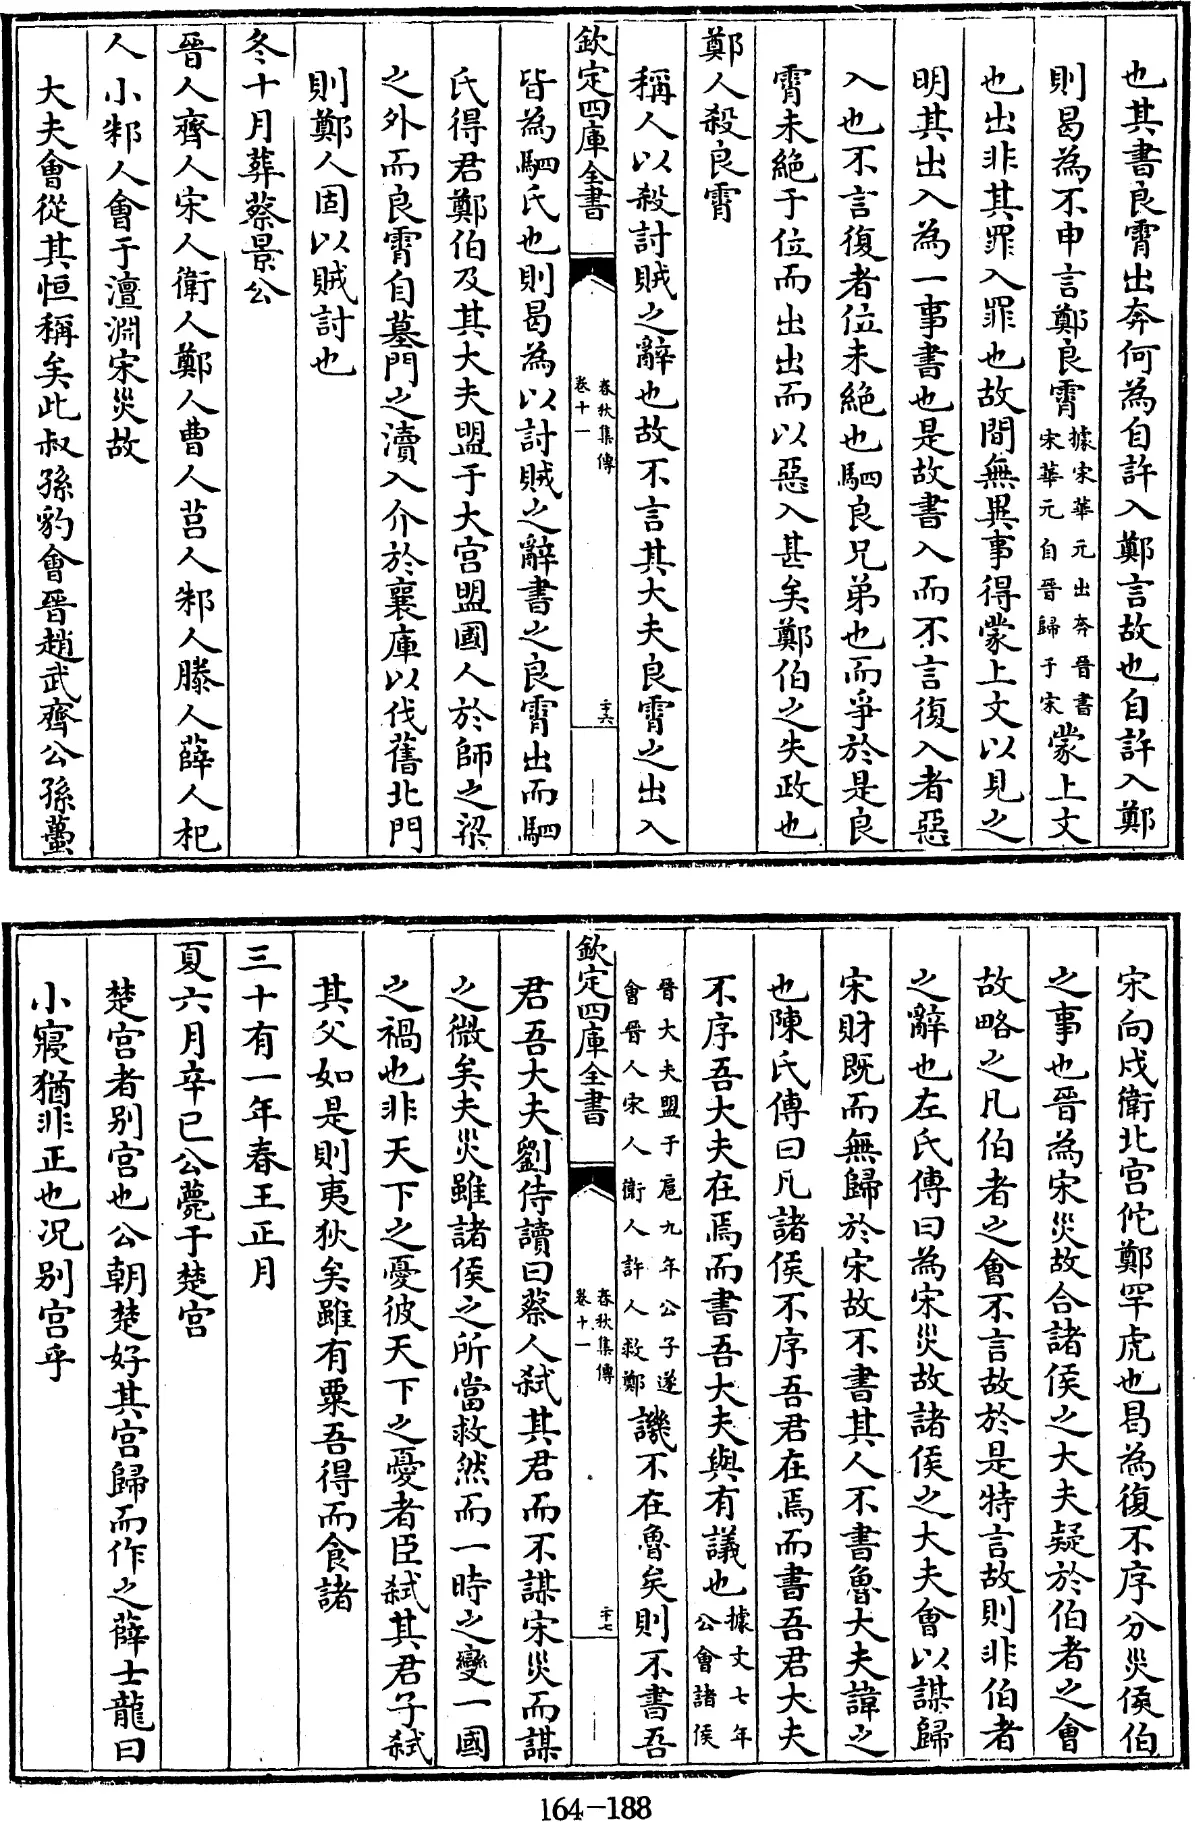 也其書良霄出奔何為自許入鄭言故也自許入鄭
則曷為不申言鄭良霄據宋華元出奔晉書宋華元自晉歸于宋蒙上文
也出非其罪入罪也故間無異事得蒙上文以見之
明其出入為一事書也是故書入而不言復入者惡
入也不言復者位未絶也駟良兄弟也而爭於是良
霄未絶于位而出出而以惡入甚矣鄭伯之失政也
鄭人殺良霄
稱人以殺討賊之辭也故不言其大夫良霄之出入
欽定四庫全書
春秋集傳
卷十一
二十六
皆為駟氏也則曷為以討賊之辭書之良霄出而駟
氏得君鄭伯及其大夫盟于大宫盟國人於師之梁
之外而良霄自墓門之瀆入介於襄庫以伐舊北門
則鄭人固以賊討也
冬十月葬蔡景公
晉人齊人宋人衛人鄭人曹人莒人邾人滕人薛人杞
人小邾人會于澶淵宋災故
大夫會從其恒稱矣此叔孫豹會晉趙武齊公孫蠆
宋向戌衛北宫佗鄭罕虎也曷為復不序分災侯伯
之事也晉為宋災故合諸侯之大夫疑於伯者之會
故略之凡伯者之會不言故於是特言故則非伯者
之辭也左氏傳曰為宋災故諸侯之大夫會以謀歸
宋財既而無歸於宋故不書其人不書魯大夫諱之
也陳氏傳曰凡諸侯不序吾君在焉而書吾君大夫
不序吾大夫在焉而書吾大夫與有議也據文七年公會諸侯
晉大夫盟于扈九年公子遂會晉人宋人衛人許人救鄭譏不在魯矣則不書吾
欽定四庫全書
春秋集傳
卷十一
二十七
君吾大夫劉侍讀曰蔡人弑其君而不謀宋災而謀
之微矣夫災雖諸侯之所當救然而一時之變一國
之禍也非天下之憂彼天下之憂者臣弑其君子弑
其父如是則夷狄矣雖有粟吾得而食諸
三十有一年春王正月
夏六月辛巳公薨于楚宫
楚宫者别宫也公朝楚好其宫歸而作之薛士龍曰
小寢猶非正也况别宫乎
164-188